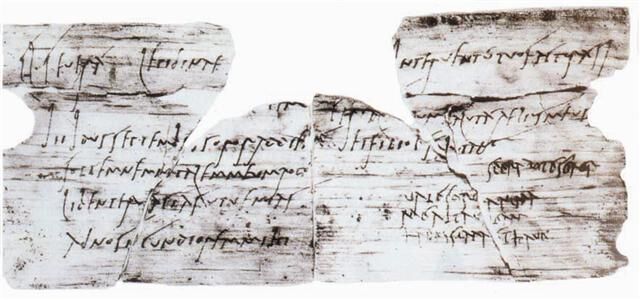 Cl Severa Lepidinae
iii Idus Septembr s soror ad diem
sollemnem natalem meum rogo
libenter facias ut venias
ad nos iucundiorem mihi
interventu tuo factura si
et filiolus salutant
sperabo te soror
vale soror anima
mea ita valeam
karissima et have